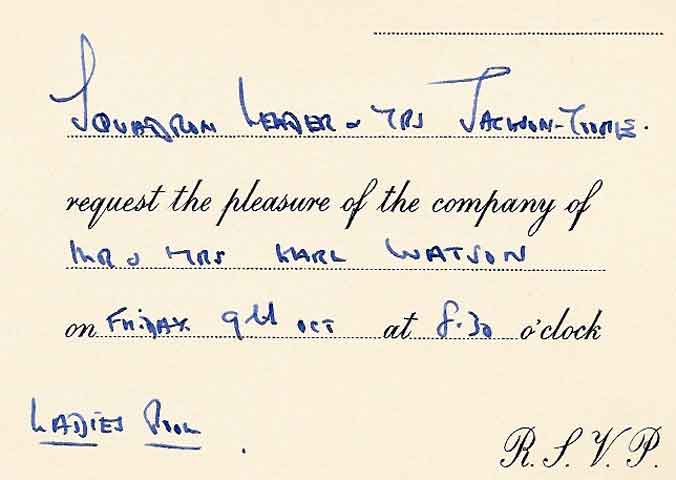 SQUADRON LEADER & MRS JACKSON-
request the pleasure of the company of
MR & MRS KARL WATSON
on FRIDAY 9th OCT at 8.30 o'clock
LADIES ROOM
R. S. V. P.